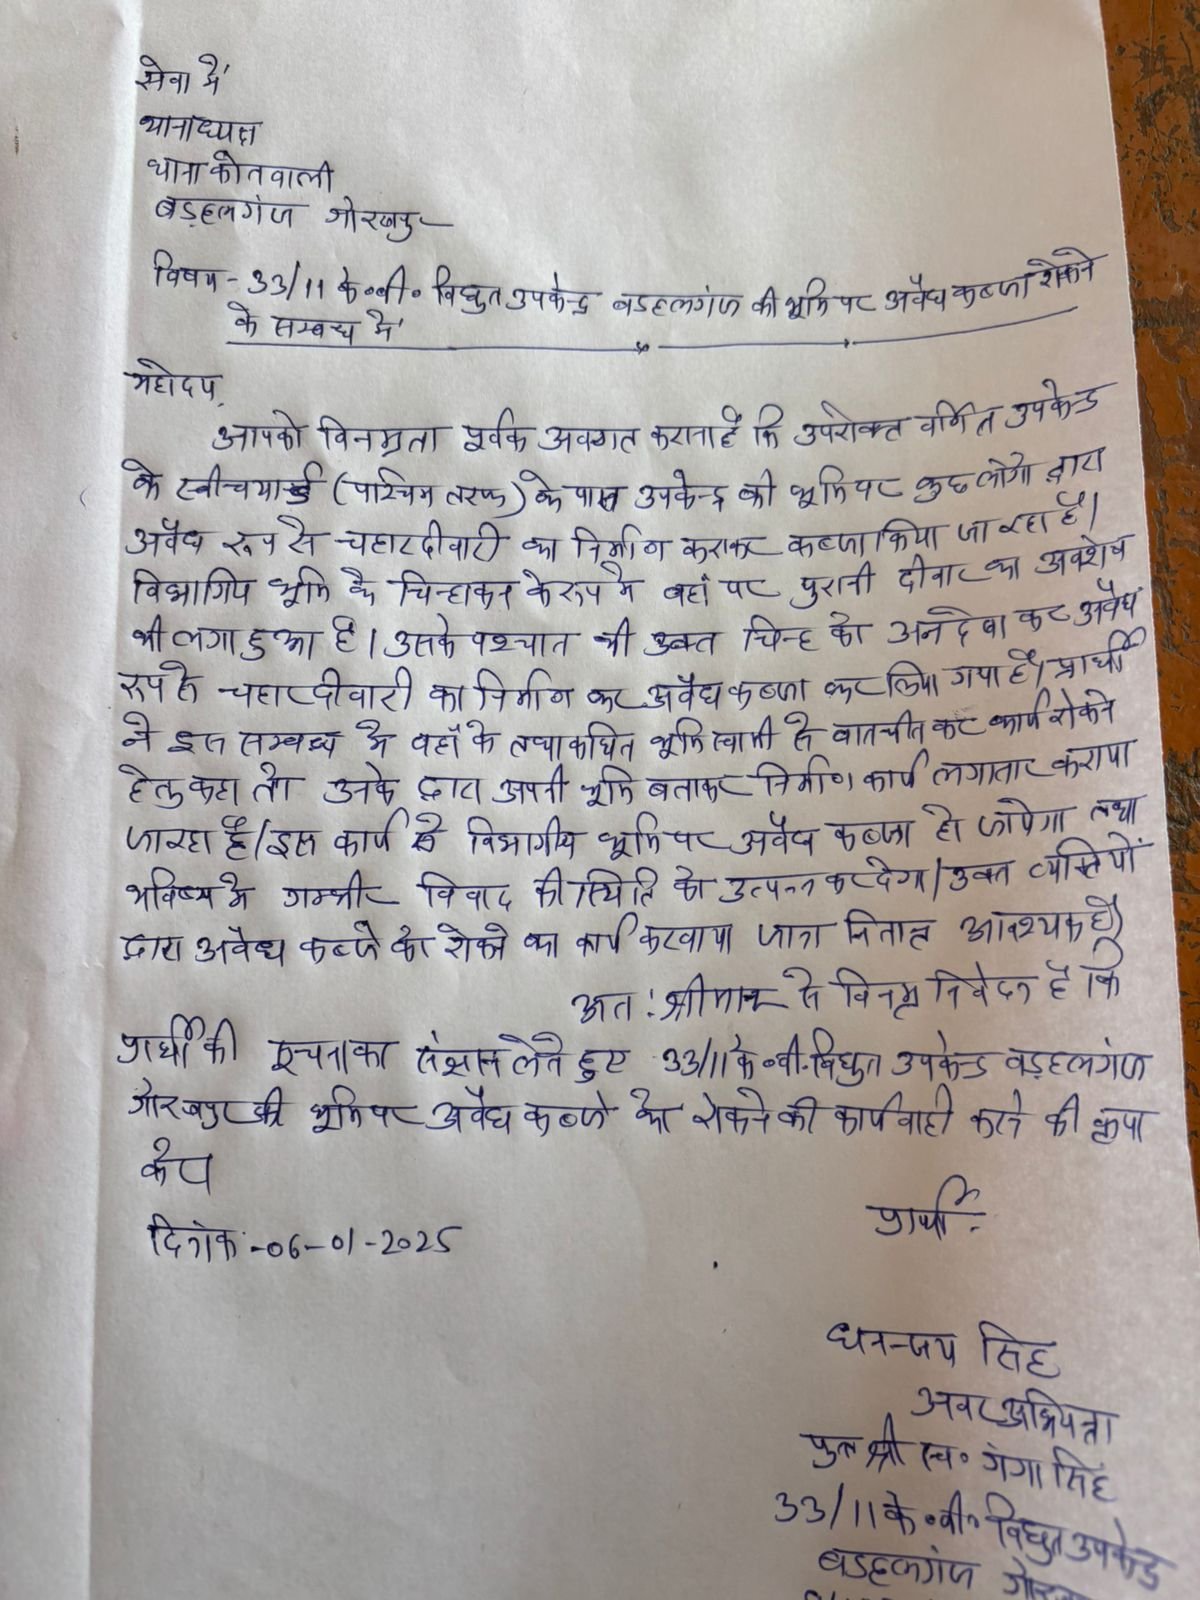 सेवा में
थानाध्यक्ष
थाना कोतवाली
बड़हलगंज गोरखपुर
विषय - 33/11 के०वी० विद्युत उपकेन्द्र बडहलगंज की भूमि पर अवैध कब्जा रोकने
के सम्बन्ध में
महोदय,
आपको विनम्रता पूर्वक अवगत कराना है कि उपरोक्त वर्णित उपकेन्द्र
के स्वीचयार्ड (पश्चिम तरफ) के पास उपकेन्द्र की भूमि पर कुछ लोगों द्वारा
अवैध रूप से चहारदीवारी का निर्माण कराकर कब्जा किया जा रहा है।
विभागिय भूमि के चिन्हाकन के रूप में वहां पर पुरानी दीवार का अवशेष
भी लगा हुआ है। उसके पश्चात भी उक्त चिन्ह को अनदेखा कर अवैध
रूप से चहारदीवारी का निर्माण कर अवैध कब्जा कर लिया गया है। प्रार्थी
ने इस सम्बन्ध में वहाँ के तथाकथित भूमि स्वामी से बातचीत कर कार्य रोकने
हेतु कहा तो उनके द्वारा अपनी भूमि बताकर निर्माण कार्य लगातार कराया
जा रहा है। इस कार्य से विभागीय भूमि पर अवैध कब्जा हो जायेगा तथा
भविष्य मे गम्भीर विवाद की स्थिति को उत्पन्न कर देगा। उक्त व्यक्तियों
द्वारा अवैध कब्जे को रोकने का कार्य करवाया जाना नितान्त आवश्यक है।
अतः श्रीमान से विनम्र निवेदन है कि
प्रार्थी की सूचना का संज्ञान लेते हुए 33/11 के०वी० विद्युत उपकेन्द्र बड़हलगंज
गोरखपुर की भूमि पर अवैध कब्जे को रोकने की कार्यवाही करने की कृपा
करें
दिनांक - 06-01-2025
प्रार्थी -
धनन्जय सिंह
अवर अभियन्ता
पुत्र श्री स्व० गंगा सिंह
33/11 के०वी० विद्युत उपकेन्द्र
बडहलगंज